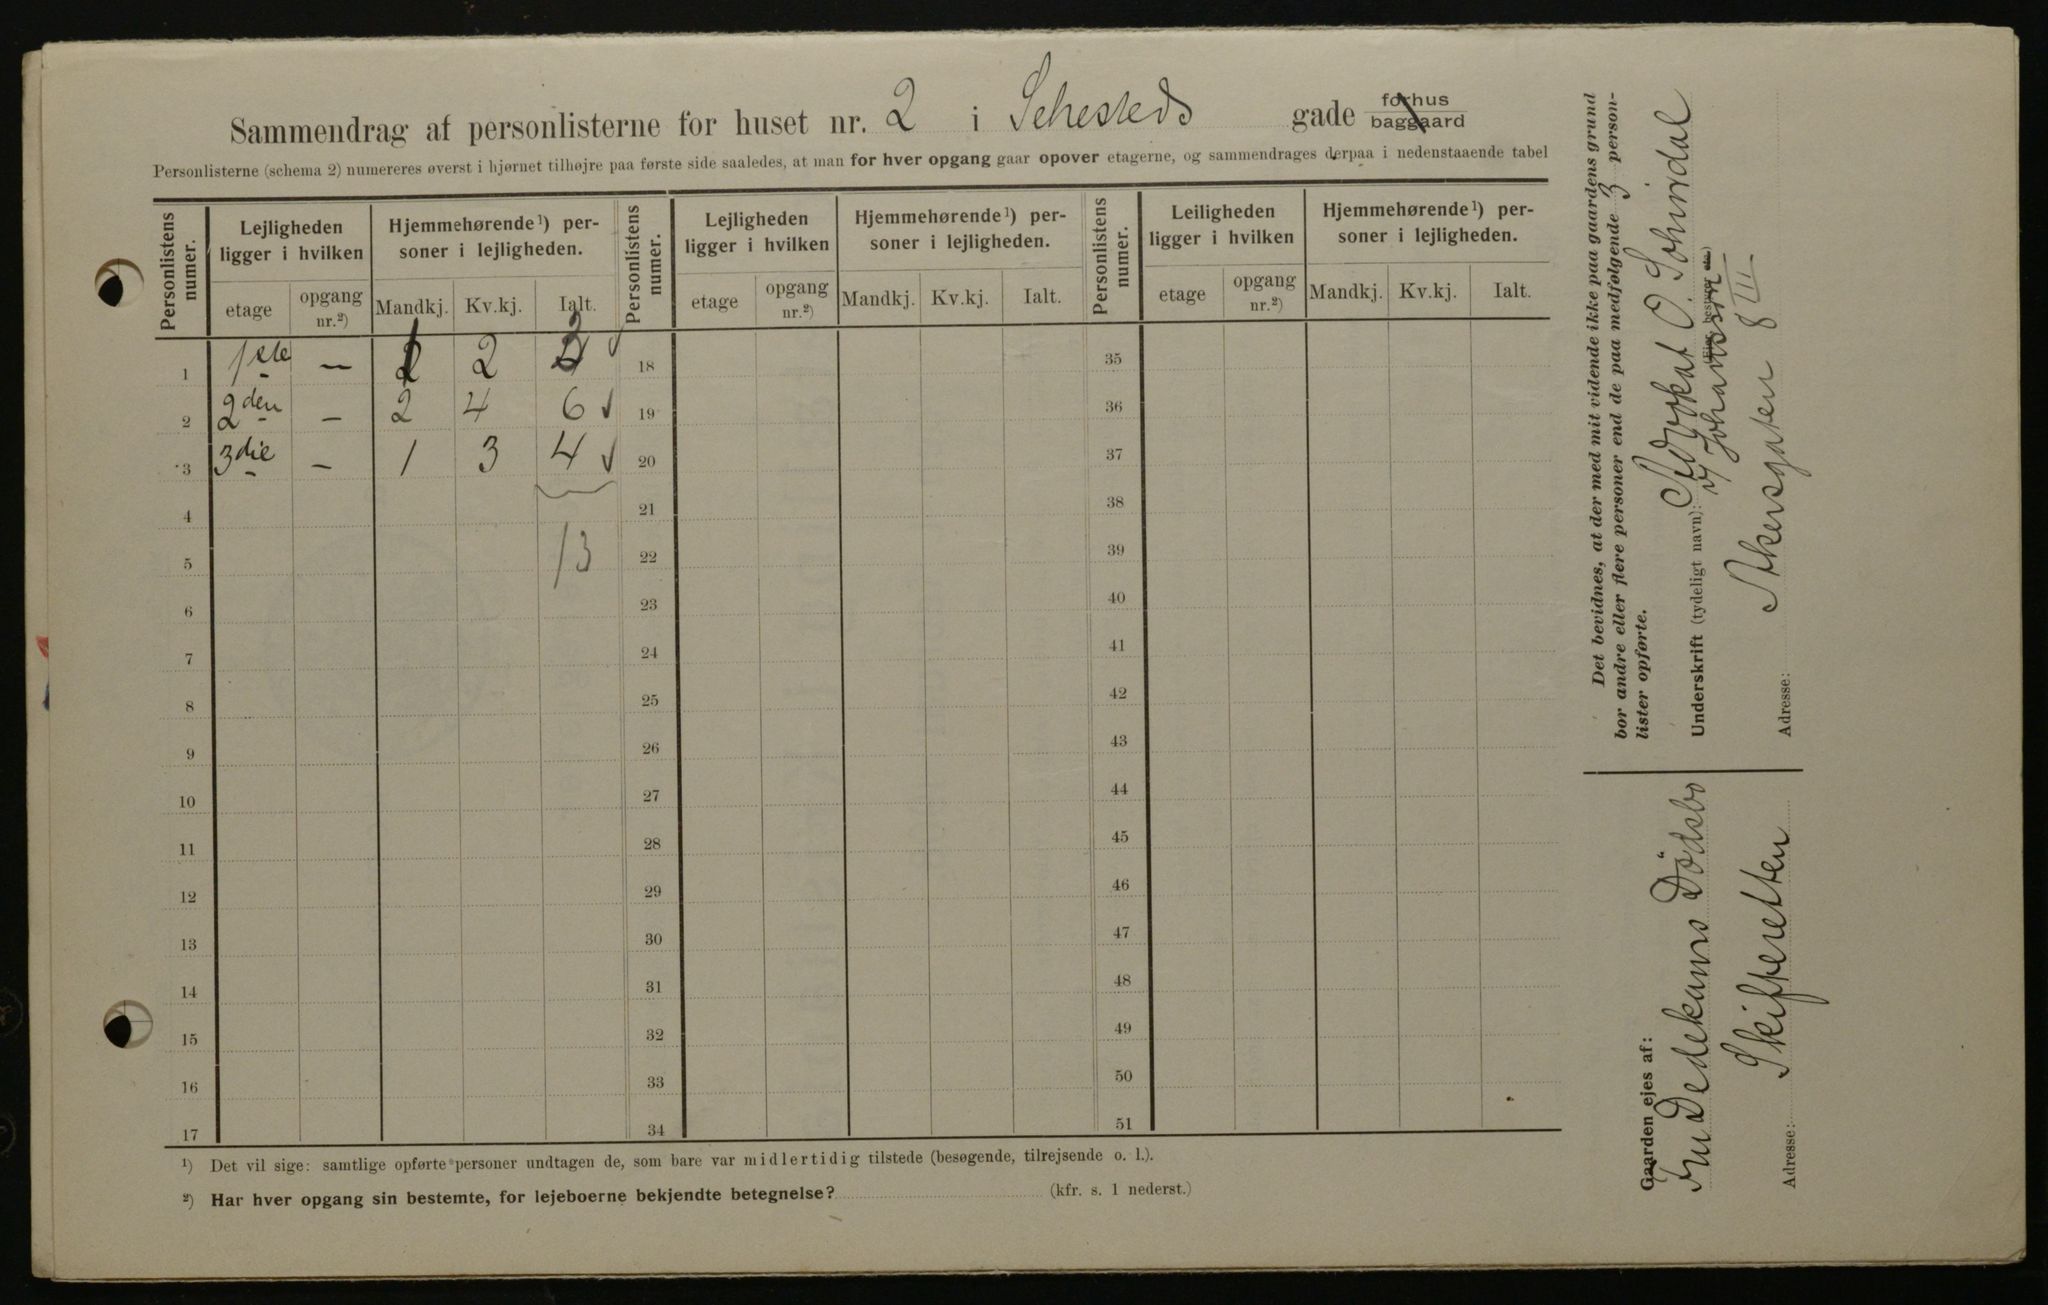 Sammendrag af personlisterne for huset nr. 2 i Sehesteds gade forhus baggaard
Personlisterne (schema 2) numereres øverst i hjørnet tilhøjre paa første side saaledes, at man for hver opgang gaar opover etagerne, og sammendrages derpaa i nedenstaaende tabel
Personlistens numer. Lejligheden ligger i hvilken Hjemmehørende ¹) personer i lejligheden. Personlistens numer. Lejligheden ligger i hvilken Hjemmehørende ¹) personer i lejligheden. Personlistens numer. Leiligheden ligger i hvilken Hjemmehørende ¹) personer i lejligheden.
etage opgang nr.²) Mandkj. Kv.kj. Ialt. etage opgang nr.²) Mandkj. Kv.kj. Ialt. etage opgang nr.²) Mandkj. Kv.kj. Ialt.
1 1ste — 1 2 3 18 35
2 2den — 2 4 6 19 36
3 3die — 1 3 4 20 37
4 21 38
5 13 22 39
6 23 40
7 24 41
8 25 42
9 26 43
10 27 44
11 28 45
12 29 46
13 30 47
14 31 48
15 32 49
16 33 50
17 34 51
¹) Det vil sige: samtlige opførte personer undtagen de, som bare var midlertidig tilstede (besøgende, tilrejsende o. l.).
²) Har hver opgang sin bestemte, for lejeboerne bekjendte betegnelse? (kfr. s. 1 nederst.)
Det bevidnes, at der med mit vidende ikke paa gaardens grund
bor andre eller flere personer end de paa medfølgende 3 person-
lister opførte.
Underskrift (tydeligt navn): Advokat O. Schirdal
v/ Johansen
Adresse: Akersgaten 8 III
Gaarden ejes af:
Fru Dedekams Dödsbo
Adresse: Skifteretten